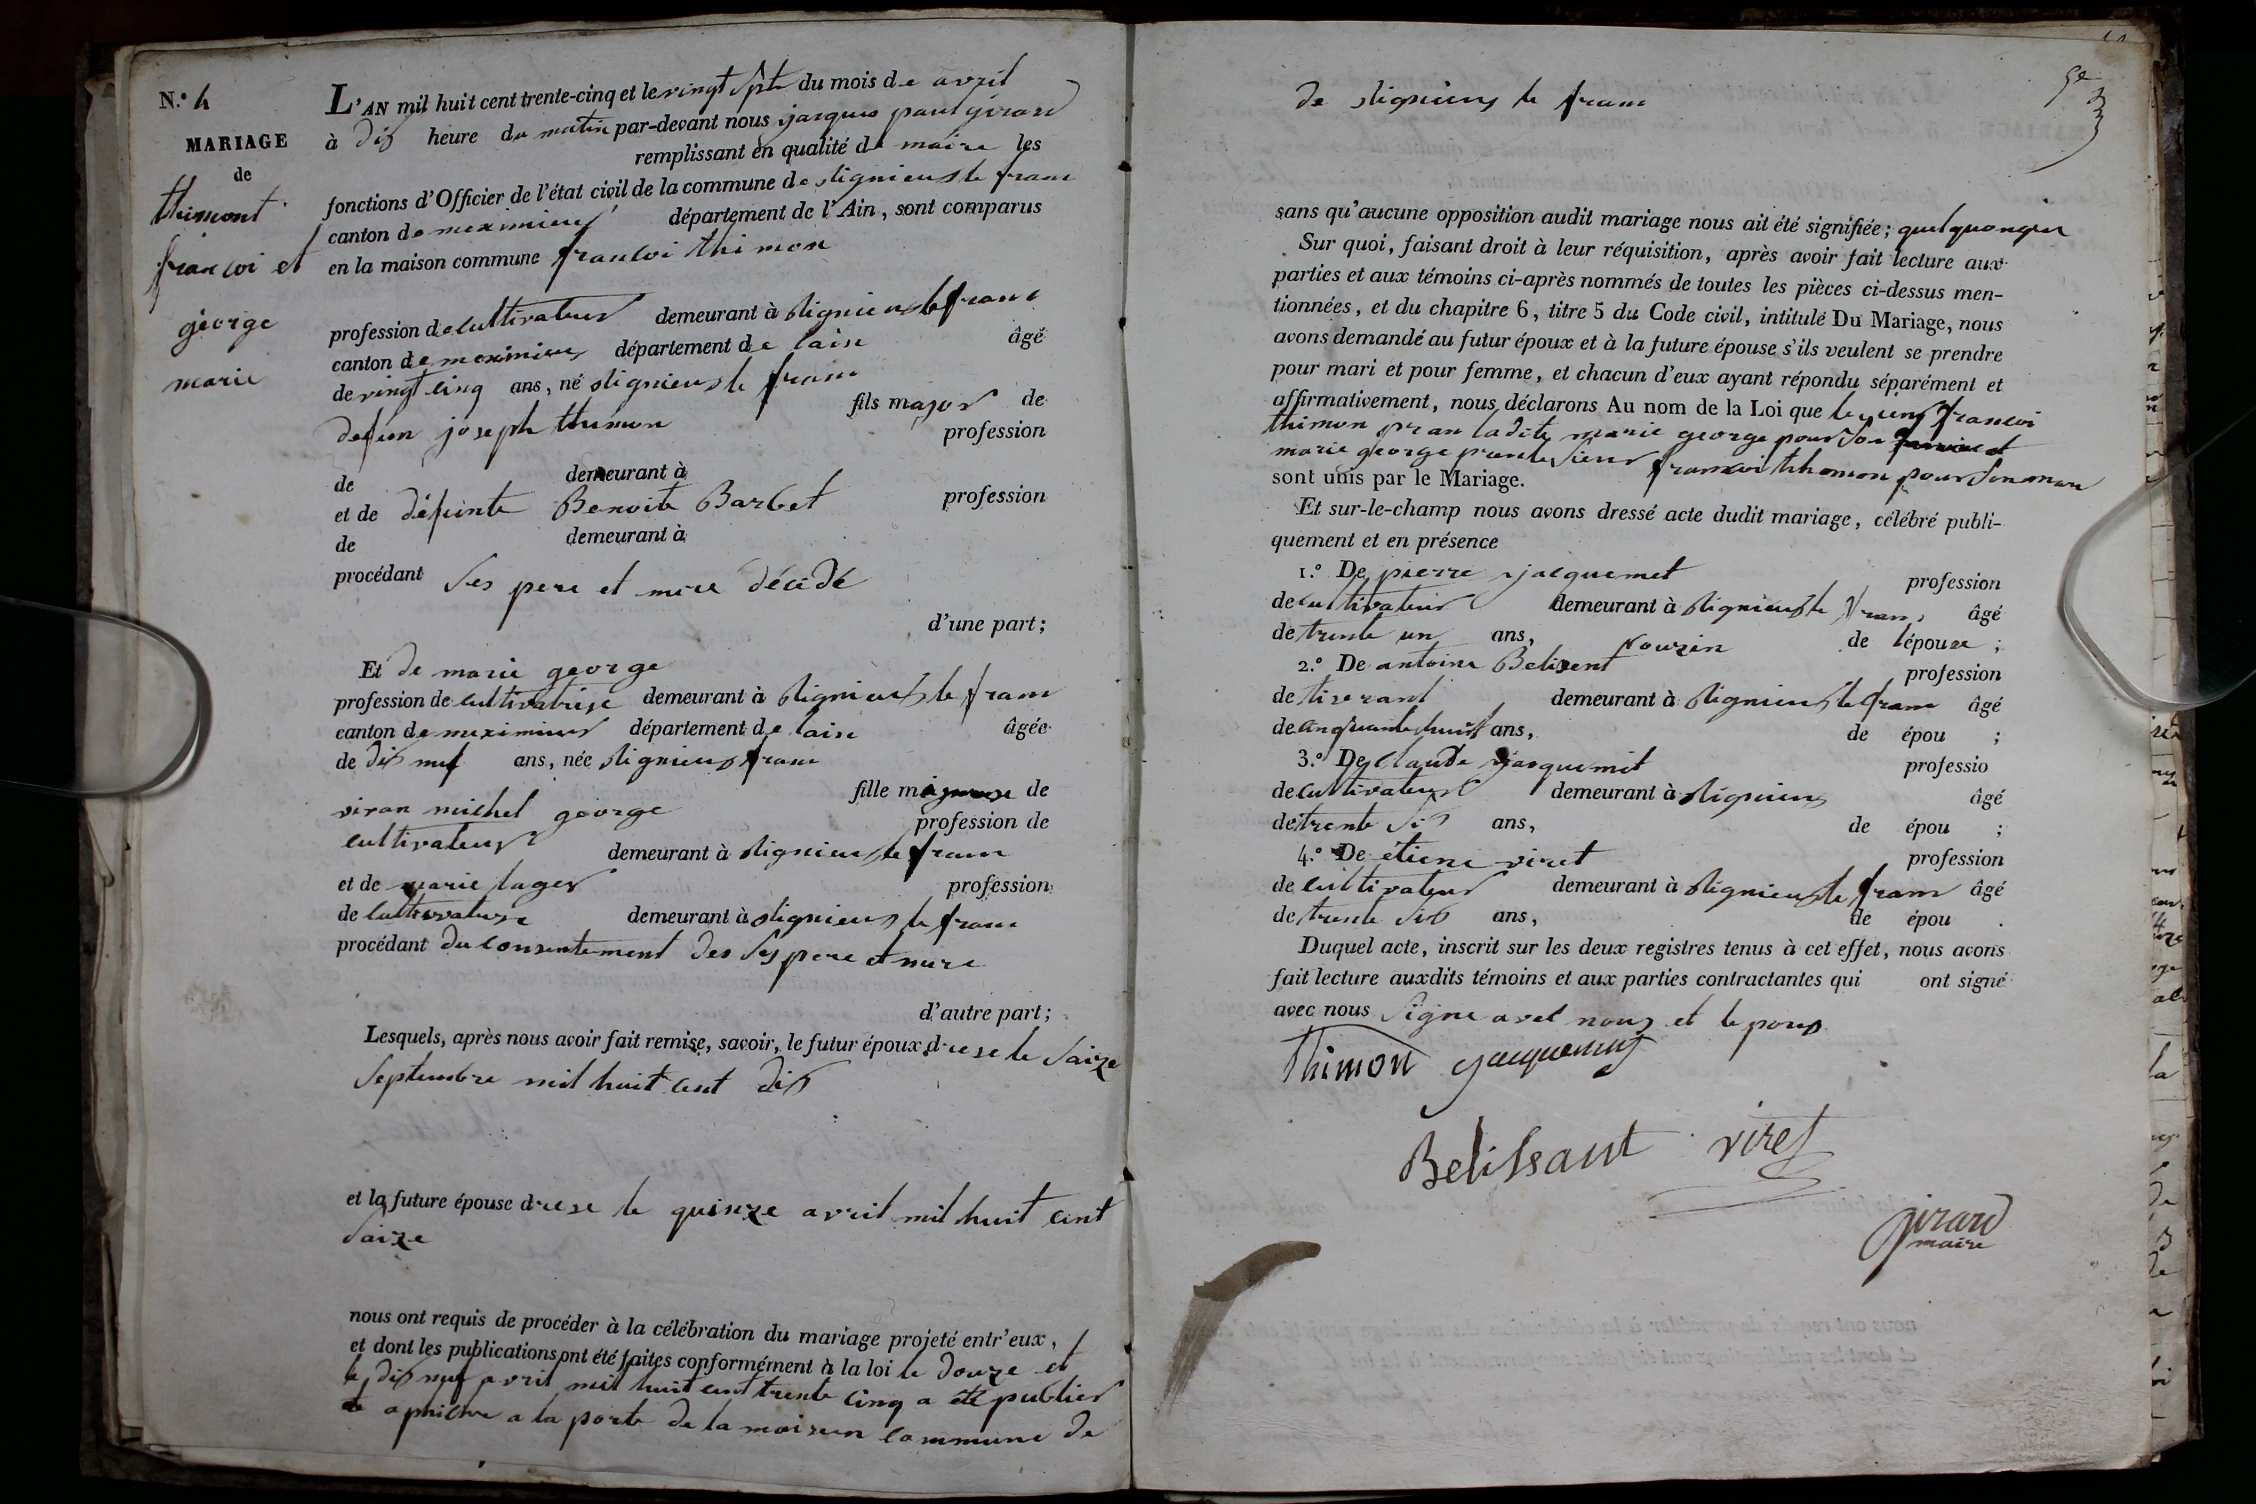 N.º 4
MARIAGE
de
thimont
francoi et
george
marie
L'AN mil huit cent trente-cinq et le vingt spt du mois de avril
à dix heure du matin par-devant nous jacques paul girard
remplissant en qualité de maire les
fonctions d'Officier de l'état civil de la commune de slignieus le franc
canton de meximieux département de l'Ain, sont comparus
en la maison commune francoi thimon
profession de cultivateur demeurant à slignieus le franc
canton de meximieux département de lain âgé
de vingt cinq ans, né slignieus le franc
fils major de
defun joseph thimon
profession
de demeurant à
et de defunte Benoite Barbet profession
de demeurant à
procédant ses pere et mere décédé
d'une part;
Et de marie george
profession de cultivatrise demeurant à slignieus le franc
canton de meximieux département de lain âgée
de dix neuf ans, née slignieus franc
fille de
vivan michel george
profession de
cultivateur demeurant à slignieus le franc
et de marie lager profession
de cultivatrise demeurant à slignieus le franc
procédant du consentement des ses pere et mere
d'autre part;
Lesquels, après nous avoir fait remise, savoir, le futur époux, drese le saize
septembre mil huit cent dix
et la future épouse drese le quinze avril mil huit cent
saize
nous ont requis de procéder à la célébration du mariage projeté entr'eux,
et dont les publications ont été faites conformément à la loi le douze et
le dix neuf avril mil huit cent trente cinq a été publier
a la porte de la maison commune de
de slignieus le franc
5e
sans qu'aucune opposition audit mariage nous ait été signifiée;
Sur quoi, faisant droit à leur réquisition, après avoir fait lecture aux
parties et aux témoins ci-après nommés de toutes les pièces ci-dessus men-
tionnées, et du chapitre 6, titre 5 du Code civil, intitulé Du Mariage, nous
avons demandé au futur époux et à la future épouse s'ils veulent se prendre
pour mari et pour femme, et chacun d'eux ayant répondu séparément et
affirmativement, nous déclarons Au nom de la Loi que le francoi
thimon pran ladite marie george pour son
marie george francoi thimon pour son mari
sont unis par le Mariage.
Et sur-le-champ nous avons dressé acte dudit mariage, célébré publi-
quement et en présence
1.º De pierre jacquemet profession
de cultivateur demeurant à slignieus le franc âgé
de trente un ans, cousin de lépouse ;
2.º De antoine Belisent profession
de tiserant demeurant à slignieus le franc âgé
de cinquante huit ans, de épou ;
3.º De claude jacquemet professio
de cultivateur demeurant à slignieus âgé
de trente six ans, de épou ;
4.º De étiene viret profession
de cultivateur demeurant à slignieus le franc âgé
de trente six ans, de épou .
Duquel acte, inscrit sur les deux registres tenus à cet effet, nous avons
fait lecture auxdits témoins et aux parties contractantes qui ont signé
avec nous signe avec nous et le poux
Thimon jacquemet
Belissant viret
girard
maire